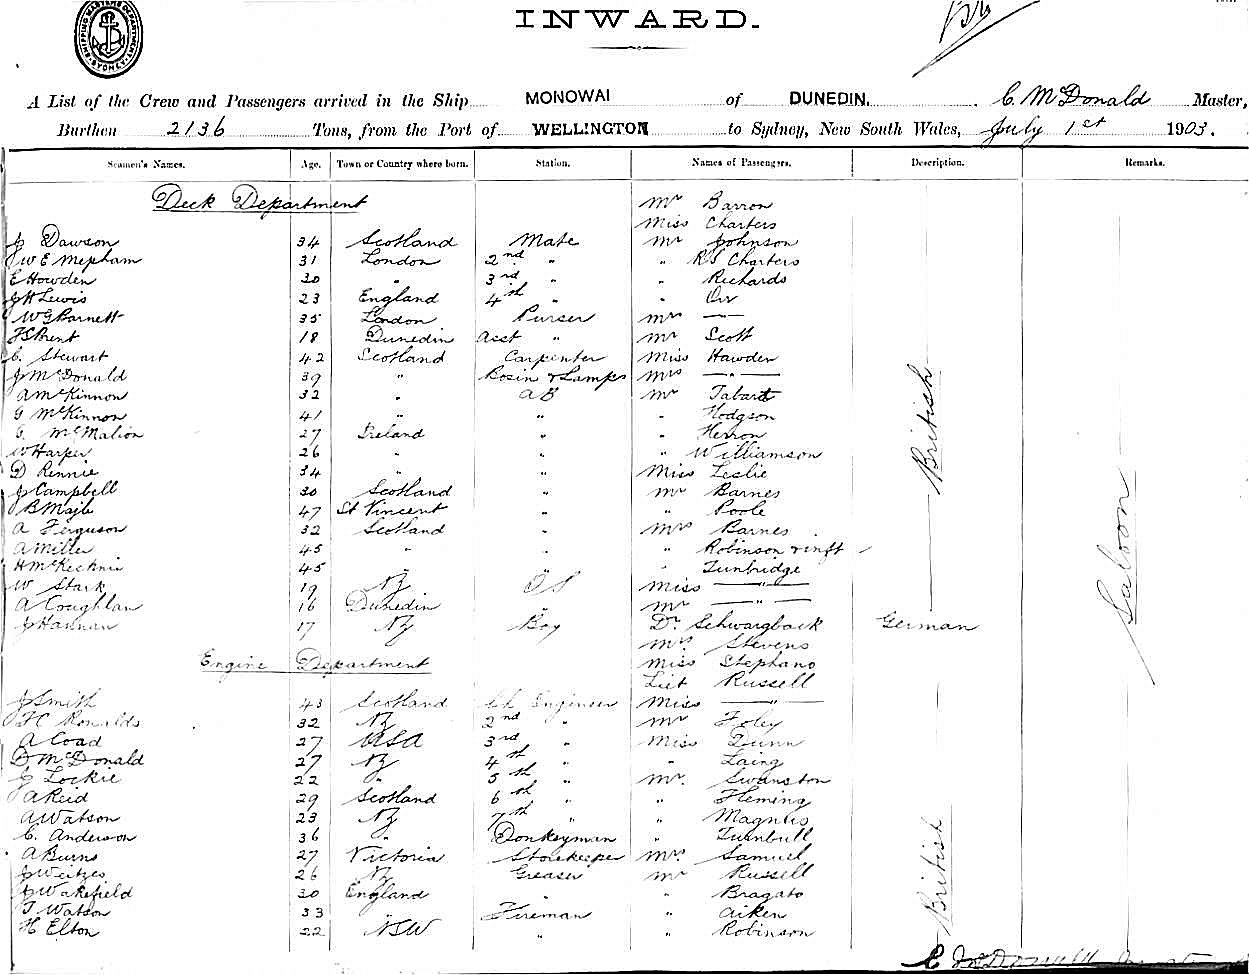 SHIPPING MASTERS DEPARTMENT SYDNEY
INWARD.
A List of the Crew and Passengers arrived in the Ship MONOWAI of DUNEDIN. C. McDonald Master,
Burthen 2136 Tons, from the Port of WELLINGTON to Sydney, New South Wales, July 1st 1903.
Seamen's Names. Age. Town or Country where born. Station. Names of Passengers. Description. Remarks.
Deck Department Mr Barron
Miss Charters
J Dawson 34 Scotland Mate Mr Johnson
J W E Mepham 31 London 2nd " " R S Charters
E Howden 30 " 3rd " " Richards
J H Lewis 23 England 4th " " Orr
W G Barnett 35 London Purser Mr — " —
18 Dunedin Asst " Mr Scott
C. Stewart 42 Scotland Carpenter Miss Hawden
J McDonald 39 " Bosin & Lamps Mrs — " —
A McKinnon 32 " AB Mr Tabart
G McKinnon 41 " " " Hodgson
C. McMalion 27 Ireland " " Herron
W Harper 26 " " " Williamson
D Rennie 34 " " Miss Leslie
J Campbell 30 Scotland " Mr Barnes
B 47 St Vincent " " Poole
A Ferguson 32 Scotland " Mrs Barnes
A Miller 45 " " " Robinson & inft
H McKechnie 45 " " " Tunbridge
W Stark 19 NZ OS Miss — " —
A Coughlan 16 Dunedin " Mr — " —
J Hannan 17 NZ Boy Dr. Schwarzback German
Mrs Stevens
Engine Department Miss Stephano
Liet Russell
J Smith 43 Scotland Ch Engineer Miss — " —
F C Ronalds 32 NZ 2nd " Mr Foley
A Coad 27 USA 3rd " Miss Dunn
D McDonald 27 NZ 4th " " Laing
J Lockie 22 " 5th " Mr. Swanston
A Reid 29 Scotland 6th " " Fleming
A Watson 23 NZ 7th " " Magnus
C. Anderson 36 " Donkeyman " Turnbull
A Burns 27 Victoria Storekeeper Mrs. Samuel
J Weitzes 26 NZ Greaser Mr Russell
J Wakefield 30 England " " Bragato
T Watson 33 " Fireman " Aiken
H Elton 22 NSW " " Robinson
British
British
Saloon
C McDonald